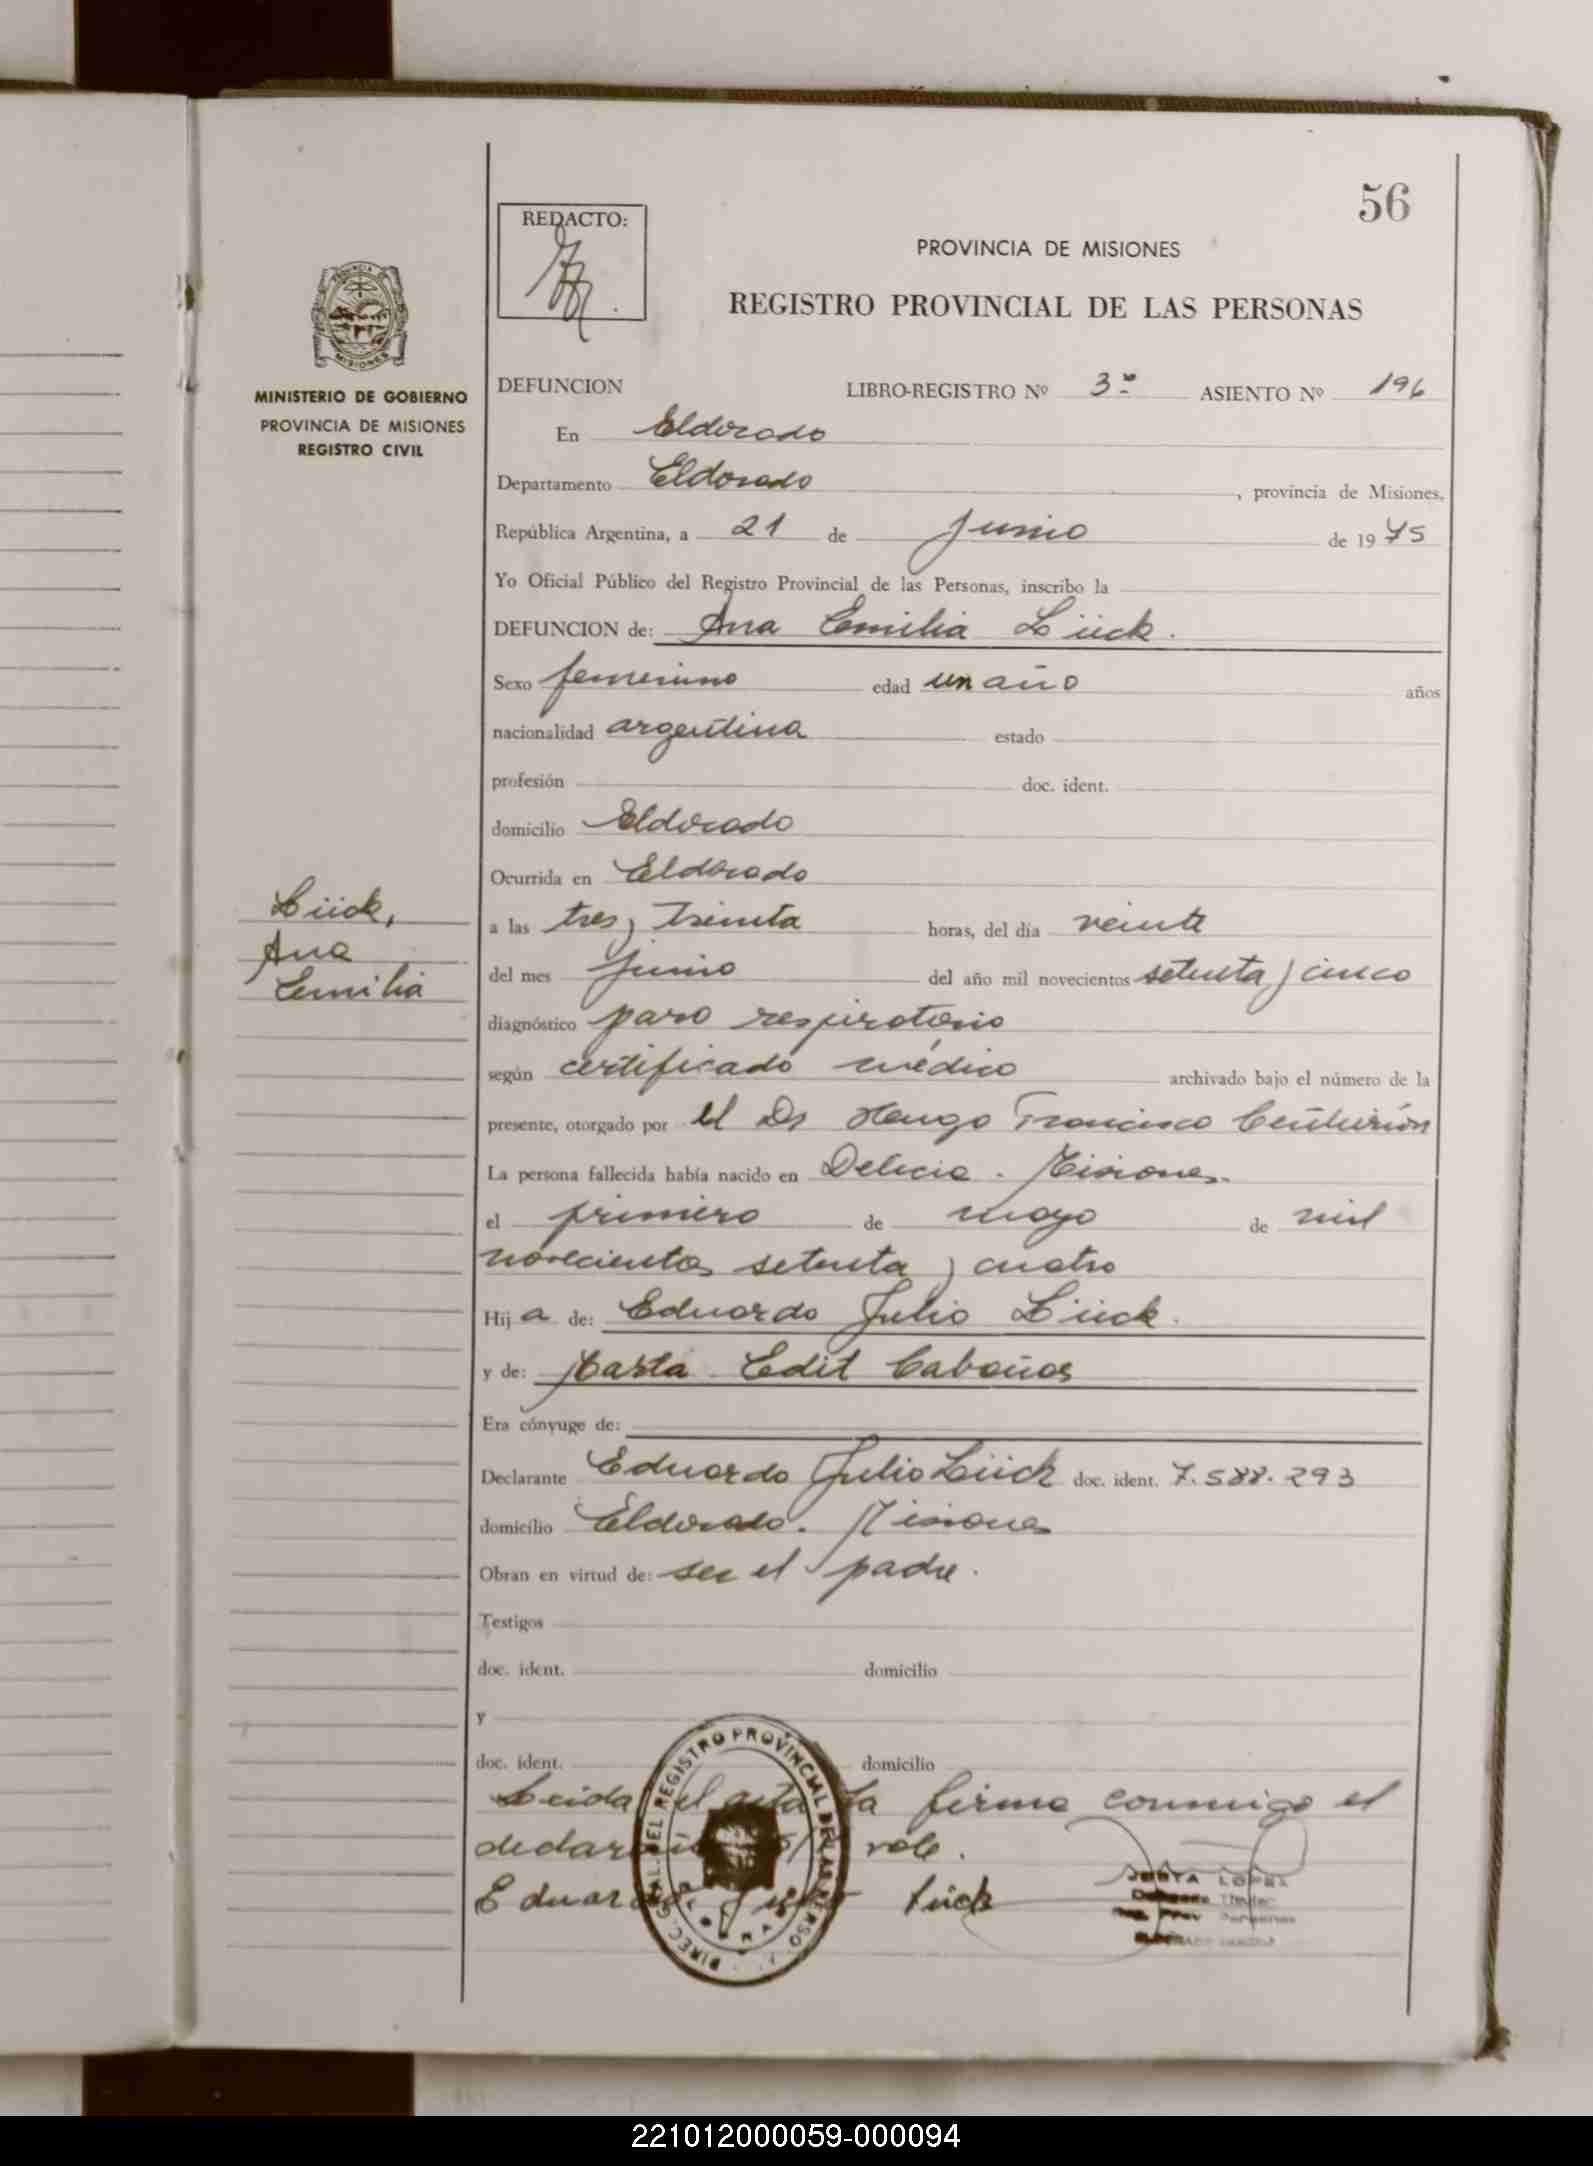 56
REDACTO:
PROVINCIA DE MISIONES
REGISTRO PROVINCIAL DE LAS PERSONAS
PROVINCIA DE
MISIONES
MINISTERIO DE GOBIERNO
PROVINCIA DE MISIONES
REGISTRO CIVIL
DEFUNCION LIBRO-REGISTRO Nº 3º ASIENTO Nº 196
En Eldorado
Departamento Eldorado, provincia de Misiones,
República Argentina, a 21 de Junio de 1975
Yo Oficial Público del Registro Provincial de las Personas, inscribo la
DEFUNCION de: Ana Emilia Lück.
Sexo femenino edad un año años
nacionalidad argentina estado
profesión doc. ident.
domicilio Eldorado
Ocurrida en Eldorado
Lück,
Ana
Emilia
a las tres y treinta horas, del día veinte
del mes junio del año mil novecientos setenta y cinco
diagnóstico paro respiratorio
según certificado médico archivado bajo el número de la
presente, otorgado por el Dr Hugo Francisco Centurión
La persona fallecida había nacido en Delicia - Misiones.
el primero de mayo de mil
novecientos setenta y cuatro
Hija de: Eduardo Julio Lück.
y de: Marta Edit Cabañas
Era cónyuge de:
Declarante Eduardo Julio Lück doc. ident. 7.588.293
domicilio Eldorado. Misiones
Obran en virtud de: ser el padre.
Testigos
doc. ident. domicilio
y
doc. ident. domicilio
Leida el acta la firma conmigo el
vale.
Eduardo Lück
DIREC. GRAL. DEL REGISTRO PROVINCIAL DE LAS PERSO
LOPEZ
221012000059-000094